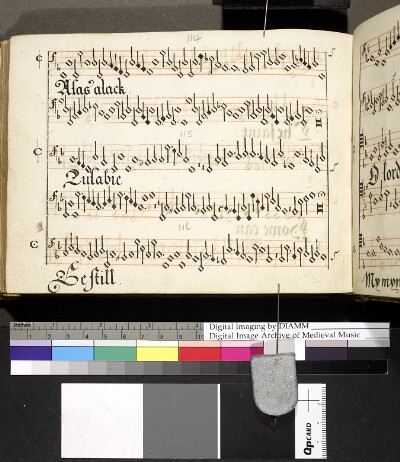 114
Alas alack
115
Lulabie
116
Be still
O lord
My myn
Inches
Digital Imaging by DIAMM
Digital Image Archive of Medieval Music
QPCARD